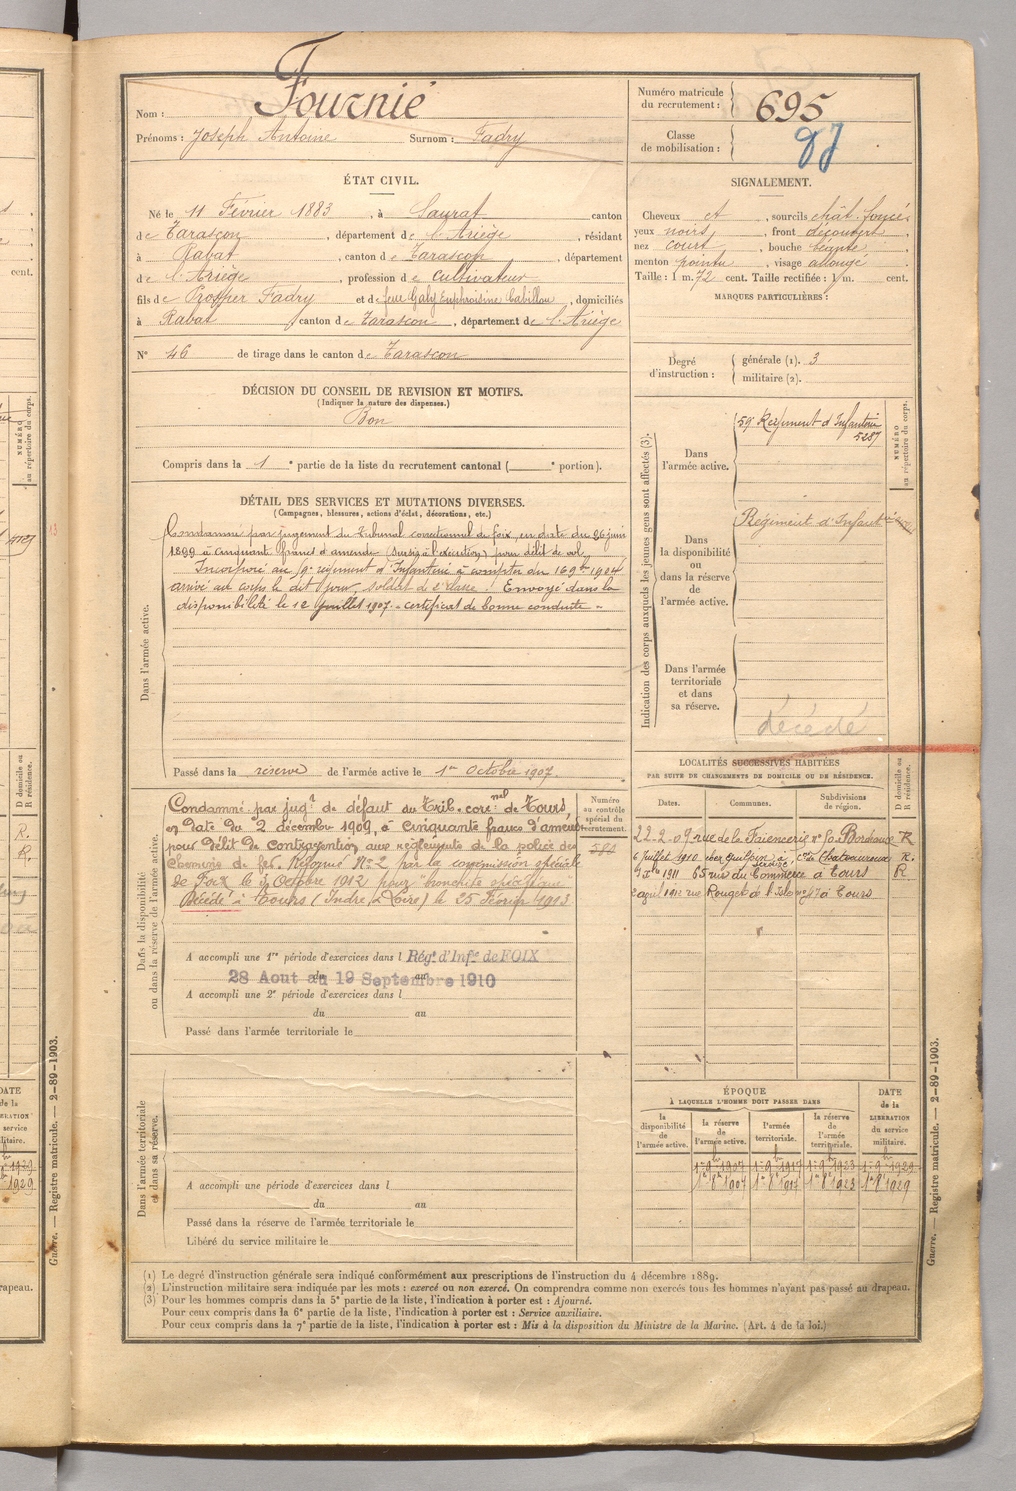 Nom : Fournié
Prénoms : Joseph Antoine Surnom : Fadry
Numéro matricule du recrutement : 695
Classe de mobilisation :
ÉTAT CIVIL.
Né le 11 Février 1883, à Saurat canton
de Tarascon, département de l'Ariège, résidant
à Rabat, canton de Tarascon, département
de l'Ariège, profession de Cultivateur
fils de Prosper Fadry et de feue Galy Euphroisine Cabillou, domiciliés
à Rabat canton de Tarascon, département de l'Ariège
N° 46 de tirage dans le canton de Tarascon
SIGNALEMENT.
Cheveux et, sourcils chât. foncé,
yeux noirs, front découvert,
nez court, bouche béante,
menton pointu, visage allongé
Taille : 1 m. 72 cent. Taille rectifiée : 1 m. cent.
MARQUES PARTICULIÈRES :
DÉCISION DU CONSEIL DE REVISION ET MOTIFS.
(Indiquer la nature des dispenses.)
Bon
Compris dans la 1e partie de la liste du recrutement cantonal ( e portion).
Degré d'instruction :
générale (1). 3
militaire (2).
DÉTAIL DES SERVICES ET MUTATIONS DIVERSES.
(Campagnes, blessures, actions d'éclat, décorations, etc.)
Dans l'armée active.
Condamné par jugement du Tribunal correctionnel de foix, en date du 26 juin
1899 à cinquante francs d'amende (sursis à l'exécution) pour délit de vol
Incorporé au 9e régiment d'Infanterie à compter du 16 9bre 1904
arrivé au corps le dit jour, soldat de 2e classe. Envoyé dans la
disponibilité le 12 Juillet 1907. certificat de bonne conduite -
Passé dans la réserve de l'armée active le 1er Octobre 1907.
Indication des corps auxquels les jeunes gens sont affectés (3).
NUMÉRO au répertoire du corps.
Dans l'armée active.
59e Régiment d'Infanterie
5287
Dans la disponibilité ou dans la réserve de l'armée active.
Régiment d'Infant
Dans l'armée territoriale et dans sa réserve.
décédé
Dans la disponibilité ou dans la réserve de l'armée active.
Numéro au contrôle spécial du recrutement.
Condamné par jugt de défaut du Trib. correnel de Tours,
en date du 2 décembre 1909, à cinquante francs d'amende
pour délit de contravention aux règlements de la police des
Chemins de fer. Réformé N° 2 par la commission spéciale
de Foix le Octobre 1912 pour "bronchite spécifique"
Décédé à Tours (Indre & Loire) le 25 Février 1913
A accompli une 1re période d'exercices dans l Régt d'Infie de FOIX
du 28 Aout au 19 Septembre 1910
A accompli une 2e période d'exercices dans l
du au
Passé dans l'armée territoriale le
LOCALITÉS SUCCESSIVES HABITÉES
PAR SUITE DE CHANGEMENTS DE DOMICILE OU DE RÉSIDENCE.
Dates. Communes. Subdivisions de région. D domicile ou R résidence.
22-2-09 rue de la Faiencerie n° 50 Bordeaux R
6 juillet 1910 Chateauroux R.
1911 65 rue du Commerce à Tours R
1912 rue Rouget de l'Isle n° 47 à Tours
Dans l'armée territoriale et dans sa réserve.
A accompli une période d'exercices dans l
du au
Passé dans la réserve de l'armée territoriale le
Libéré du service militaire le
ÉPOQUE
À LAQUELLE L'HOMME DOIT PASSER DANS
la disponibilité de l'armée active. la réserve de l'armée active. l'armée territoriale. la réserve de l'armée territoriale. DATE de la LIBÉRATION du service militaire.
1er 9bre 1907 1er 9bre 1917 1er 9bre 1923 1er 9bre 1929
1er 8bre 1907 1er 8bre 1917 1er 8bre 1923 1er 8bre 1929
(1) Le degré d'instruction générale sera indiqué conformément aux prescriptions de l'instruction du 4 décembre 1889.
(2) L'instruction militaire sera indiquée par les mots : exercé ou non exercé. On comprendra comme non exercés tous les hommes n'ayant pas passé au drapeau.
(3) Pour les hommes compris dans la 5e partie de la liste, l'indication à porter est : Ajourné.
Pour ceux compris dans la 6e partie de la liste, l'indication à porter est : Service auxiliaire.
Pour ceux compris dans la 7e partie de la liste, l'indication à porter est : Mis à la disposition du Ministre de la Marine. (Art. 4 de la loi.)
Guerre. — Registre matricule. — 2-89-1903.
Guerre. — Registre matricule. — 2-89-1903.